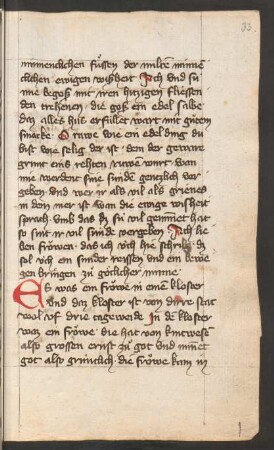 33.
minnenclichen füssen der milten minne
clichen ewigen wisheit Ach vnd sü
sü begoß mit iren hitzigen fliessen
den trehenen · die goß ein edel salbe
daz alles hus erfüllet wart mit gütem
smacke · O ruwe wie ein edel ding du
bist wie selig der ist · dem der gewore
grunt eins rehten ruwen wurt · wan
ime werdent sine sünde gentzlich ver
geben · vnd wer ir als vil als grienes
in dem mer ist · wan die ewige wisheit
sprach · vmb das dz sü vil geminnet hat
so sint ir vil sünde vergeben Ach lie
ben fröwen · das ich üch hie schribe dz
sol üch ein sunder reissen vnd ein bewe
gen bringen zü götlicher minne ·
Es was ein fröwe in eime kloster
vnd daz kloster ist von dirre stat
wol vf drie tageweide In dem kloster
waz ein fröwe · die hat von kintwesen
also grossen ernst zü got vnd minet
got also grüntlich · die fröwe kam in